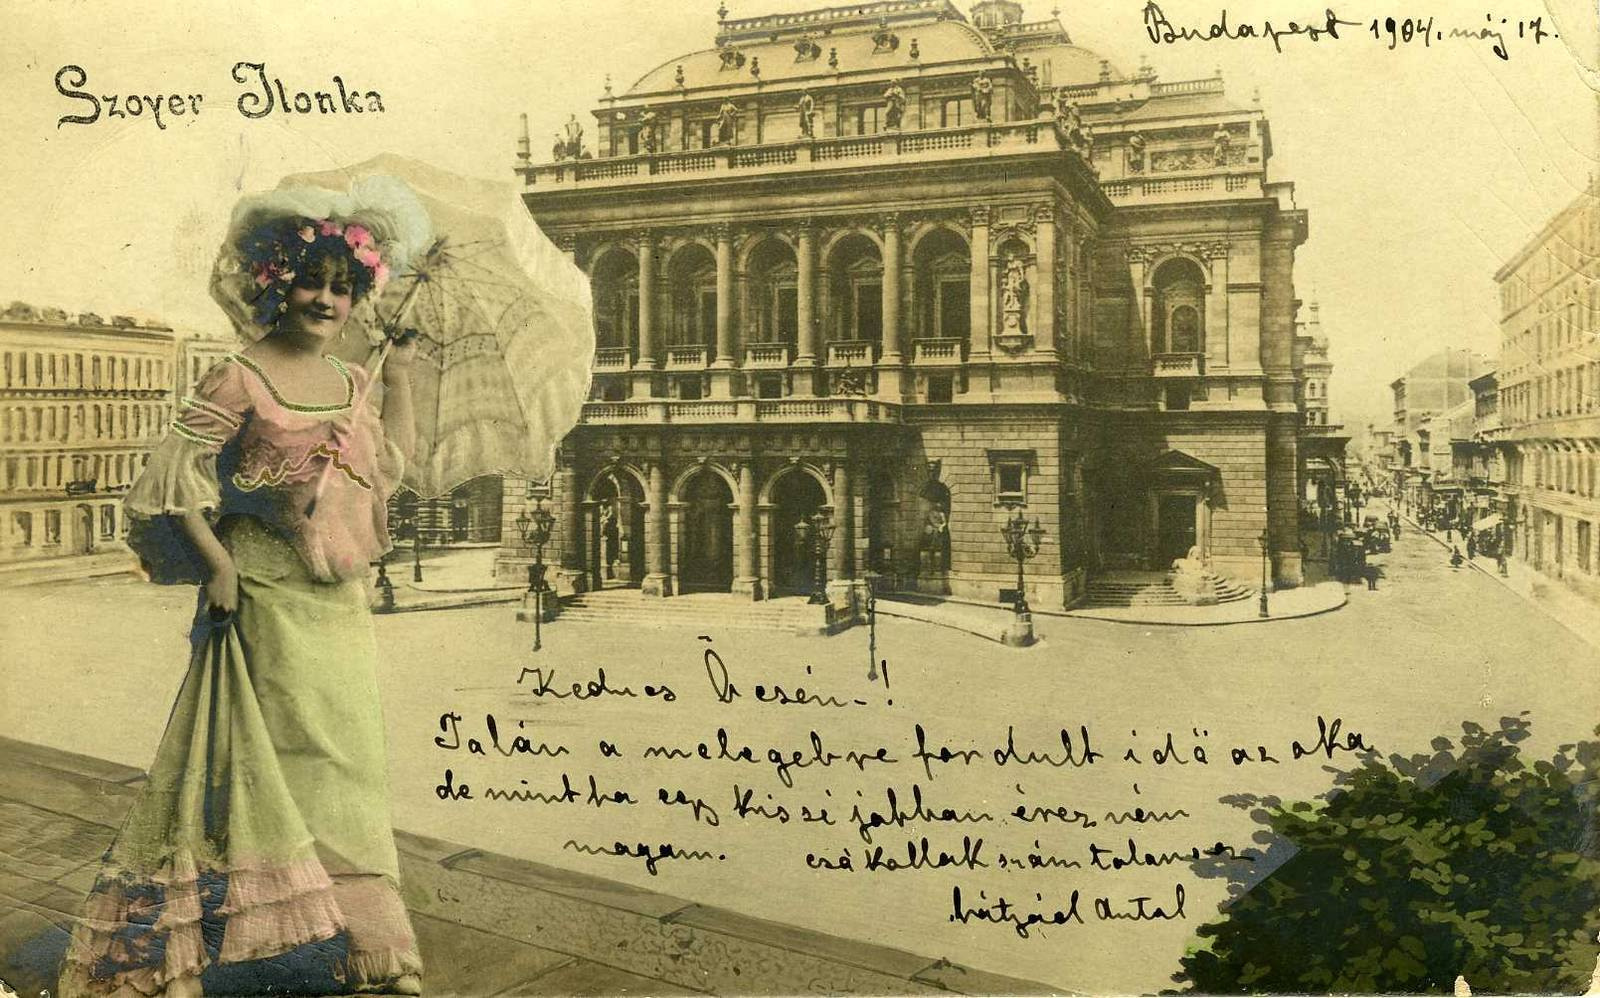 Budapest 1904. máj 17.
Szoyer Ilonka
Kedves Öcsém-!
Talán a melegebre fordult idö az oka
de mintha egy kissé jobban érezném
magam. csókollak számtalanszor
bátyád Antal